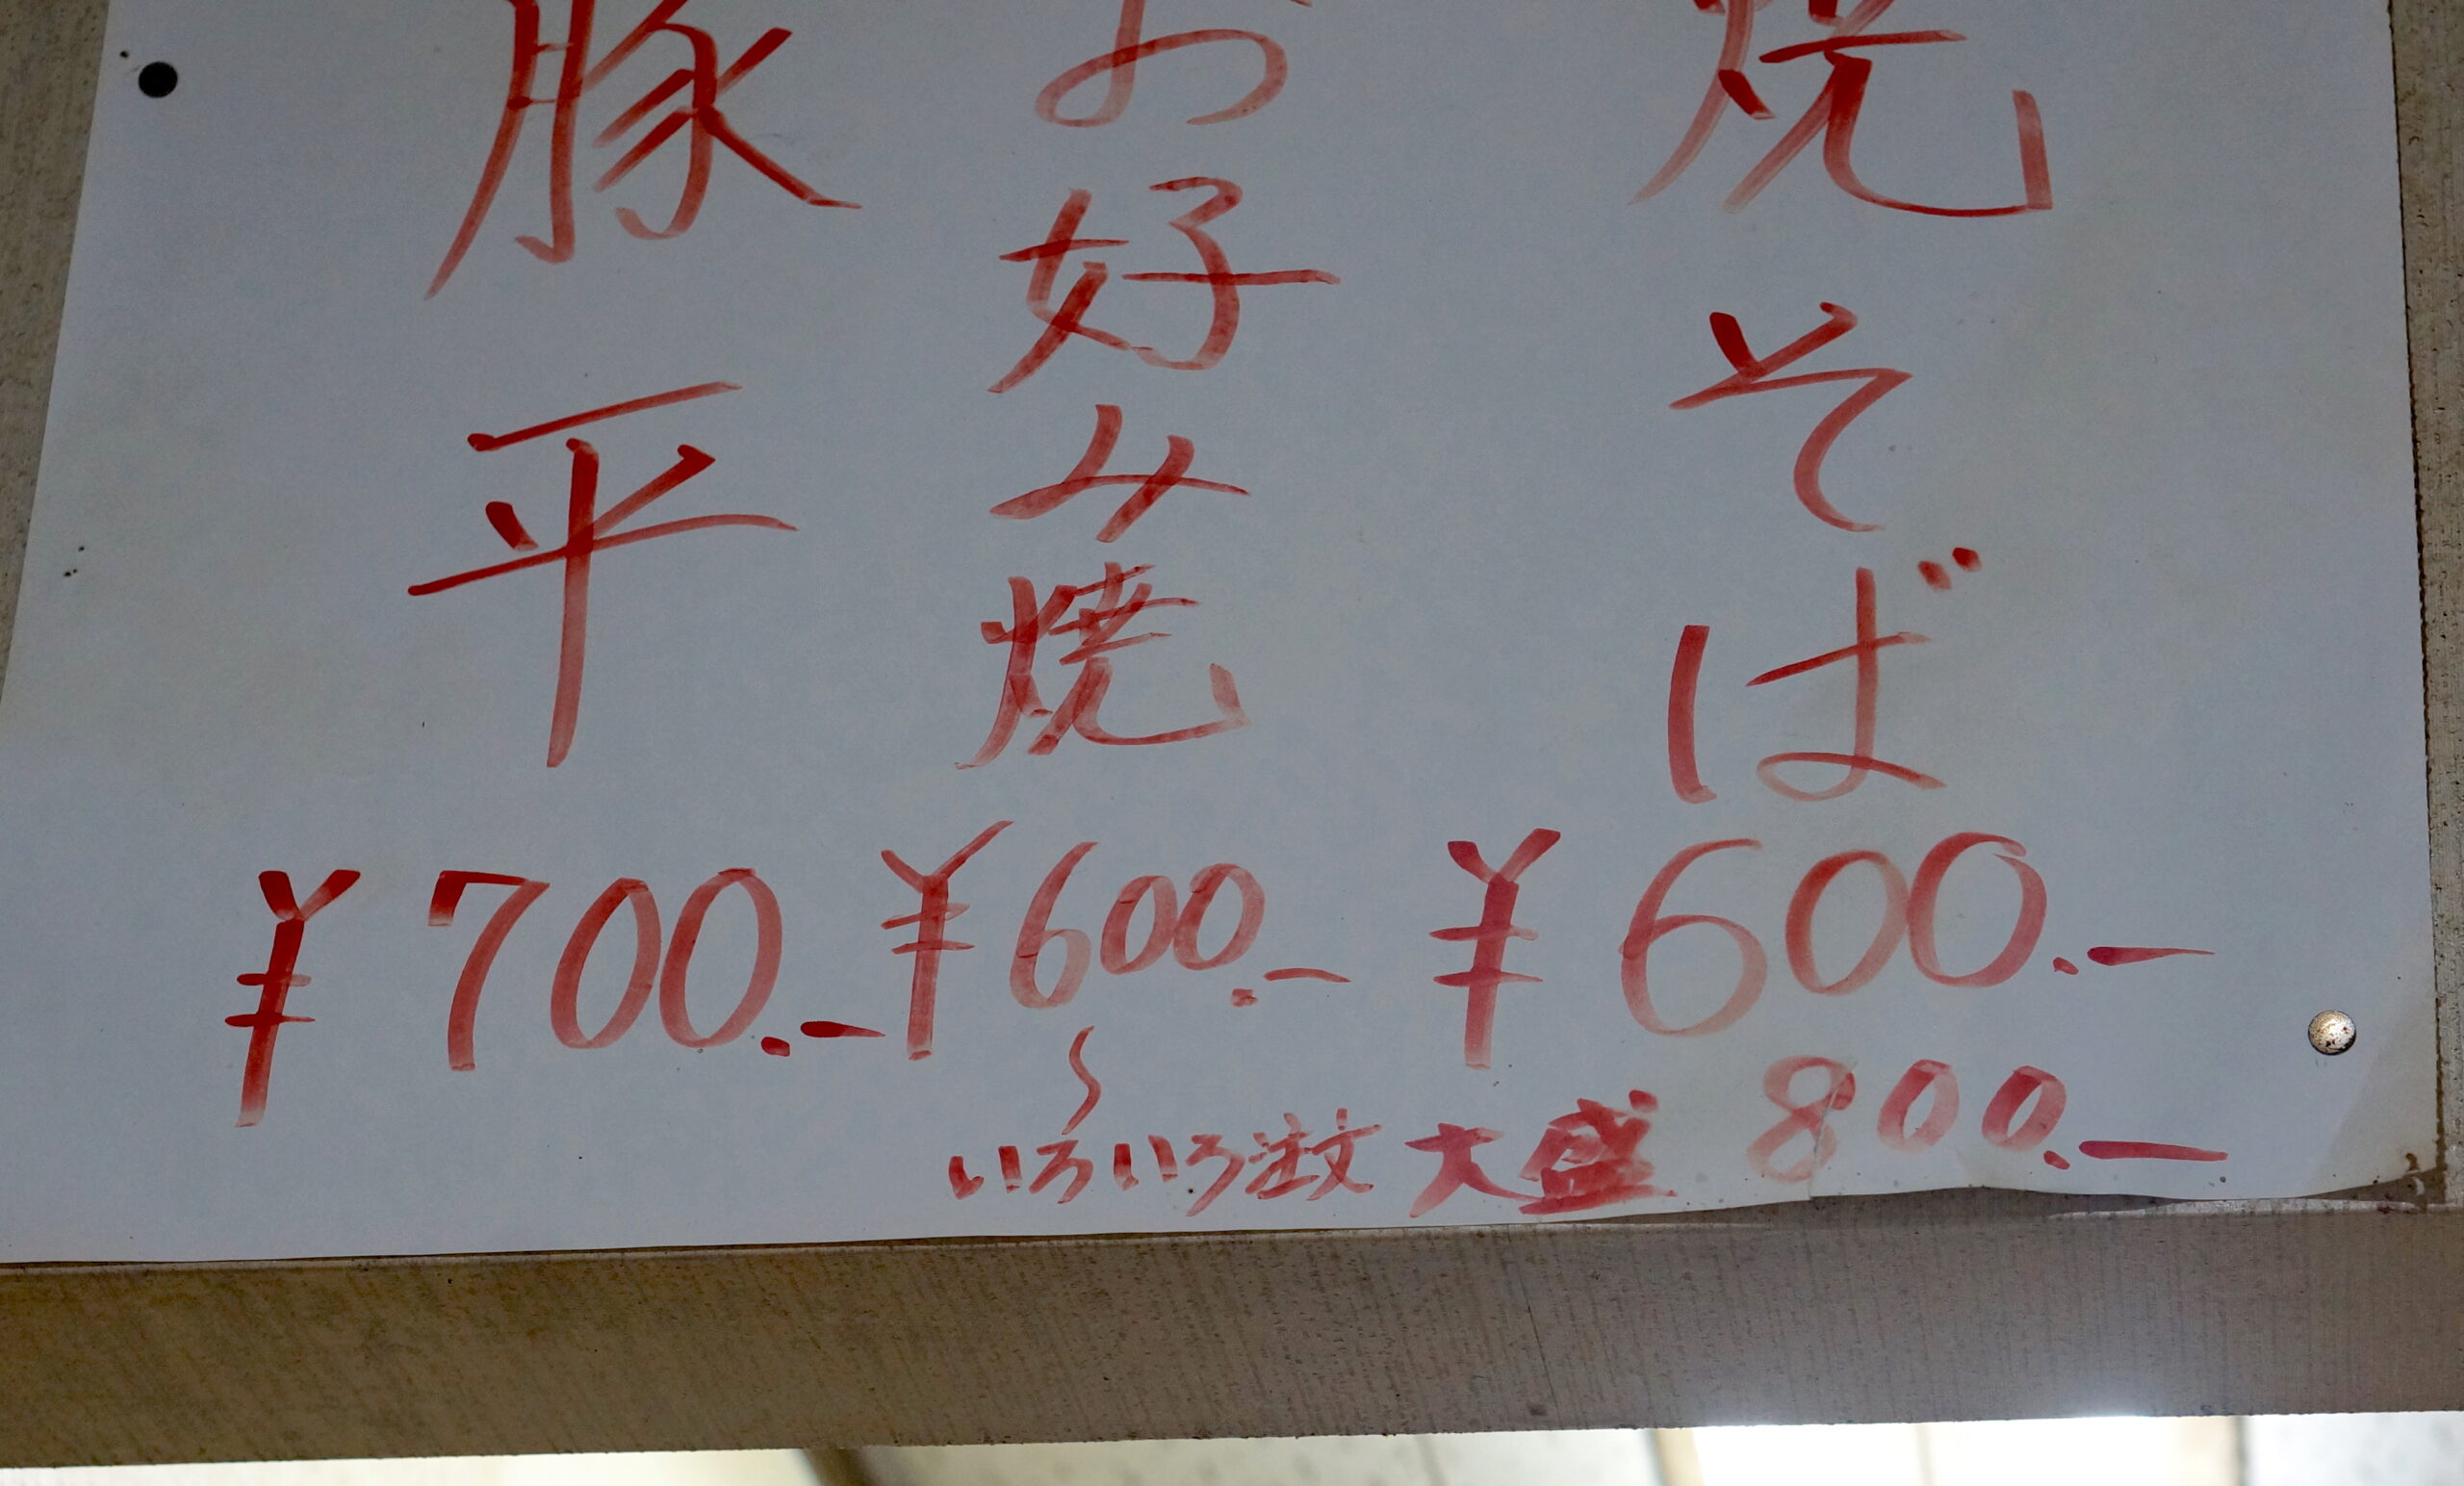 焼そば
¥600.-
大盛 800.-
お好み焼
¥600.-
〜
いろいろ注文
豚平
¥700.-